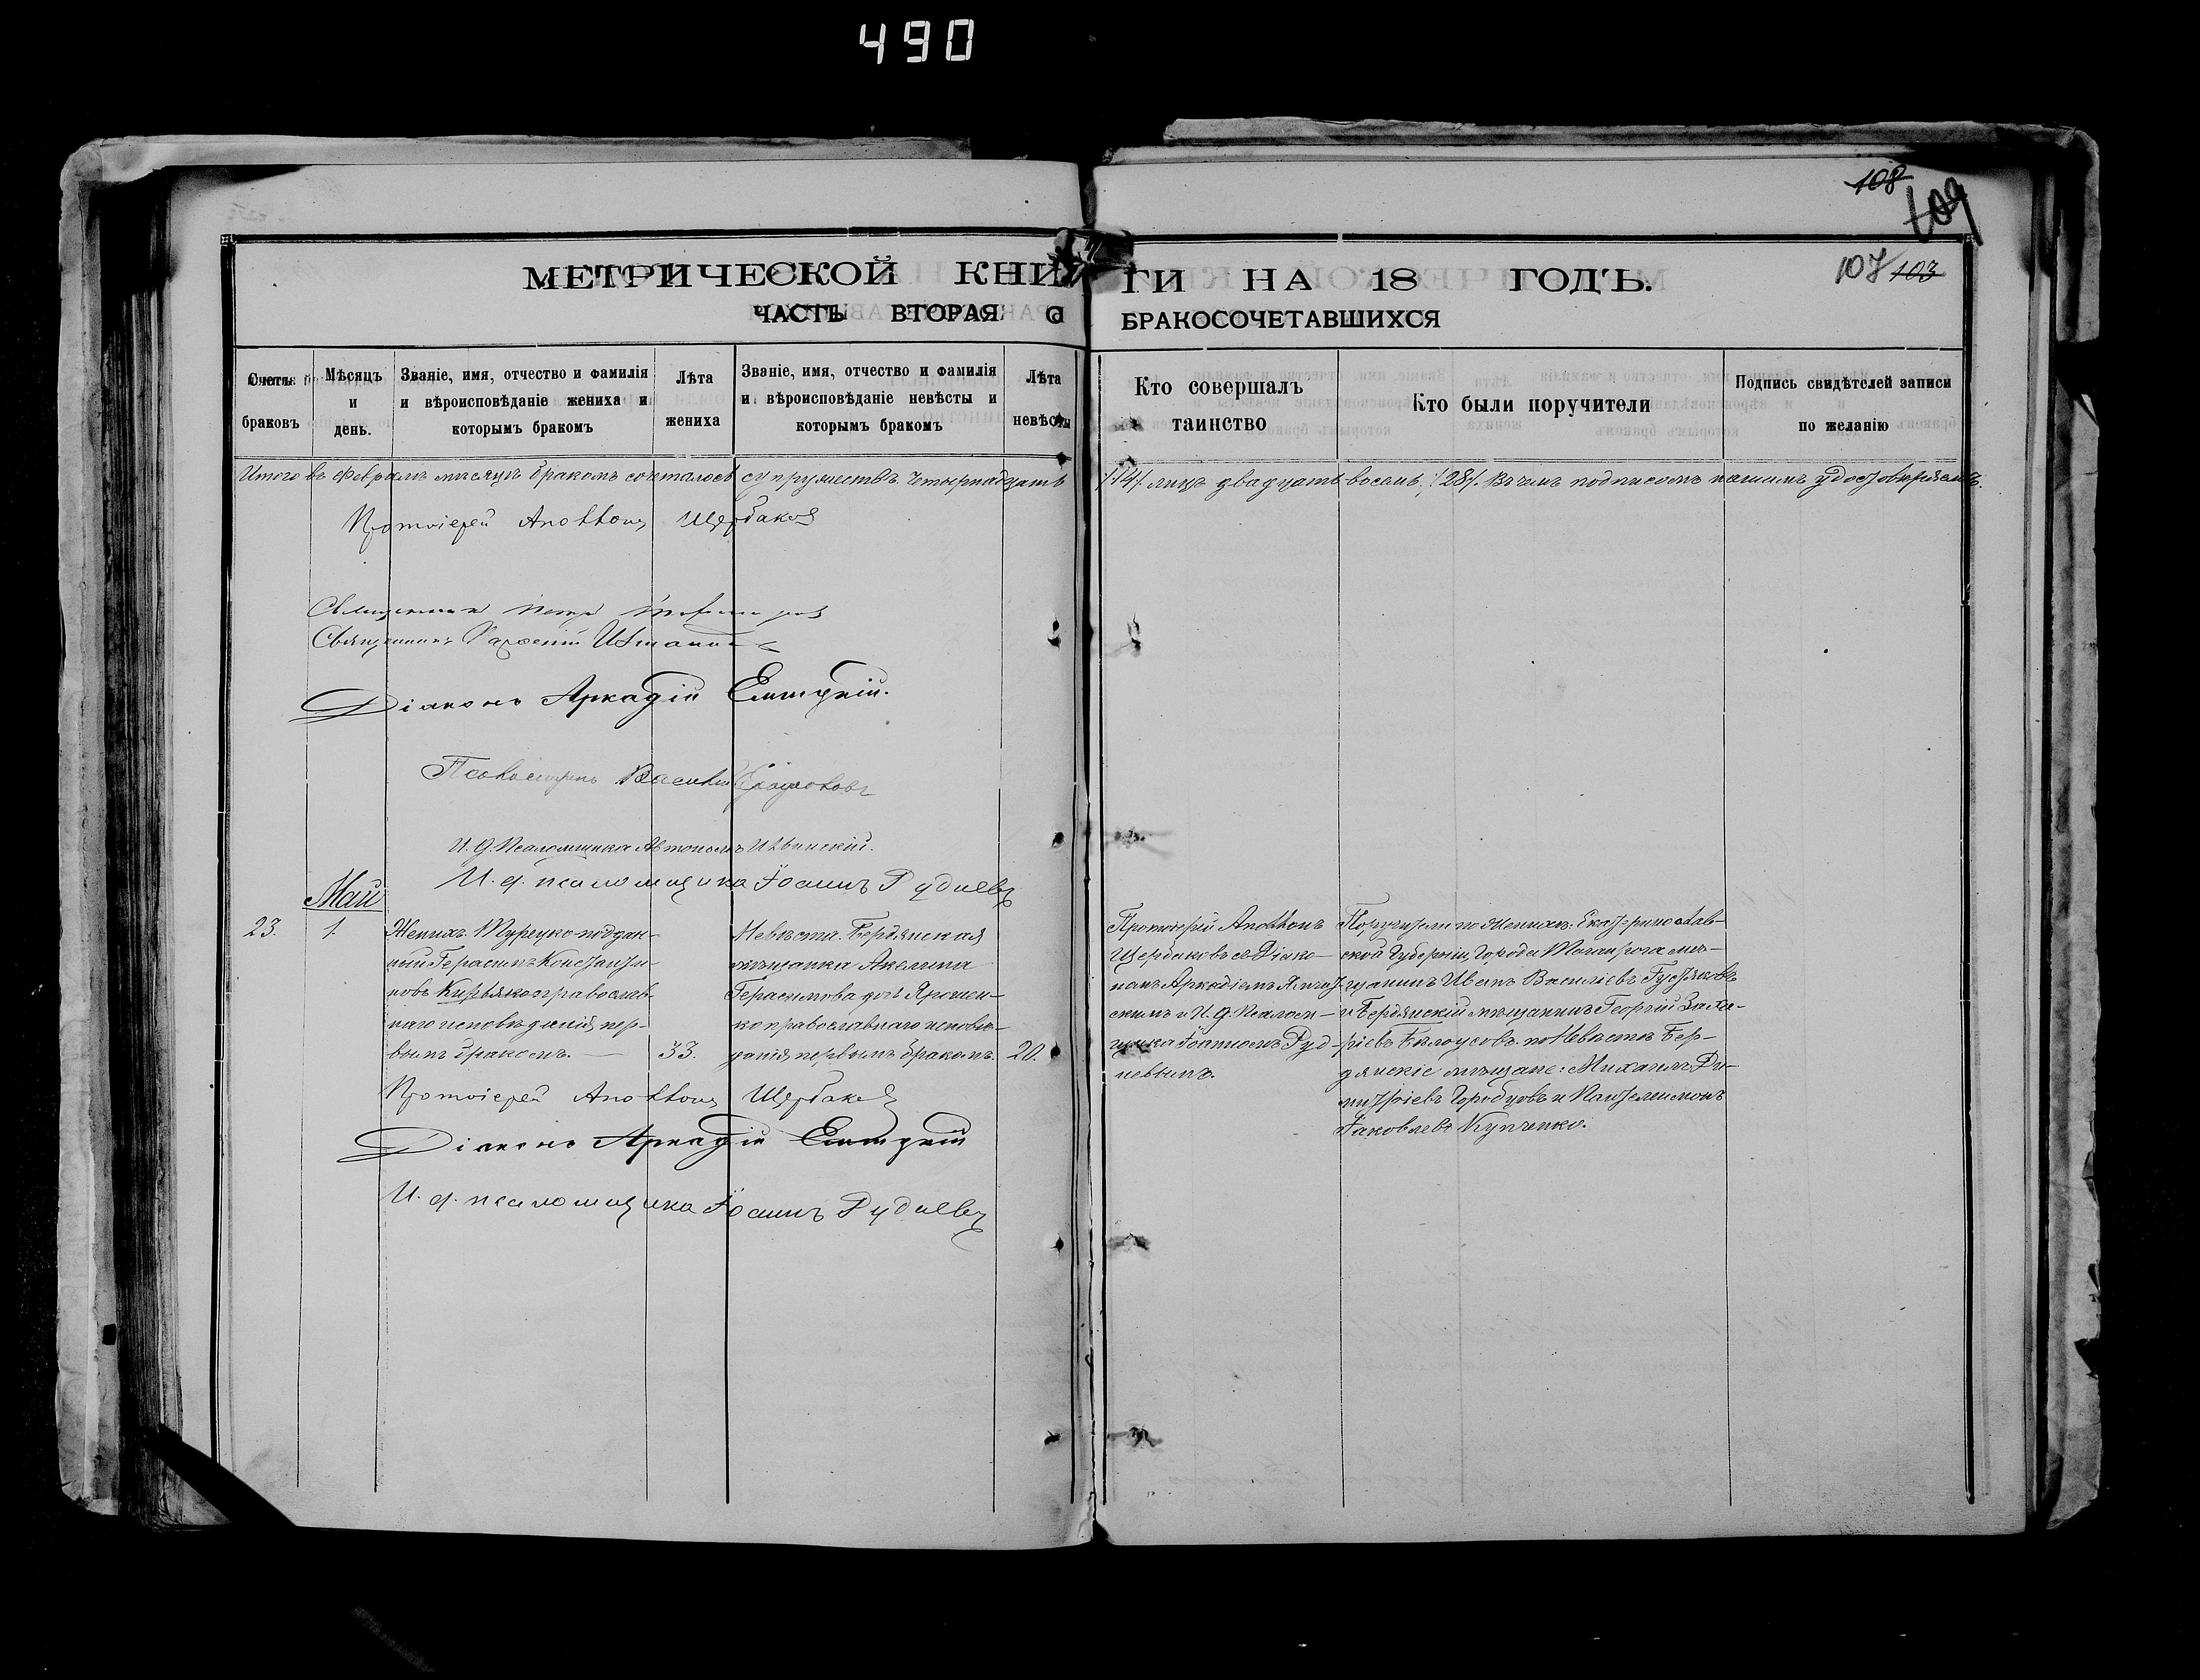 490
108
109
107 103
МЕТРИЧЕСКОЙ КНИГИ НА 18 ГОДЪ.
ЧАСТЬ ВТОРАЯ О БРАКОСОЧЕТАВШИХСЯ
Счетъ браковъ
Мѣсяцъ и день.
Званіе, имя, отчество и фамилія и вѣроисповѣданіе жениха и которымъ бракомъ
Лѣта жениха
Званіе, имя, отчество и фамилія и вѣроисповѣданіе невѣсты и которымъ бракомъ
Лѣта невѣсты
Кто совершалъ таинство
Кто были поручители
Подпись свидѣтелей записи по желанію
Итого въ Февралѣ мѣсяцѣ бракомъ сочеталось супружествъ четырнадцать /14/. лицъ двадцать восемь /28/. Въ чемъ подписомъ нашимъ удостовѣряемъ.
Протоіерей Аполлонъ Щербаковъ
Священникъ Петръ
Священникъ
Діаконъ Аркадій
Псаломщикъ Василій
И. д. Псаломщика Автономъ
И. д. псаломщика Іоаннъ Рудневъ
Май
23.
1.
Женихъ. Турецко-поддан-
ный Герасимъ Константи-
новъ Кирьяко православ-
наго исповѣданія, пер-
вымъ бракомъ.
33.
Невѣста. Бердянская
мѣщанка Акелина
Герасимова дочь Яромен-
ко православнаго исповѣ-
данія, первымъ бракомъ.
20.
Протоіерей Аполлонъ
Щербаковъ съ Діако-
номъ Аркадіемъ
скимъ и И. д. Псалом-
щика Іоанномъ Руд-
невымъ.
Поручители по Женихѣ: Екатеринослав-
ской Губерніи, Города Таганрога мѣ-
щанинъ Иванъ Василіевъ Густяковъ
и Бердянскій мѣщанинъ Георгій Заха-
ріевъ Бѣлоусовъ. по Невѣстѣ Бер-
дянскіе мѣщане: Михаилъ Ди-
митріевъ Горобцовъ и Пантелеимонъ
Іаковлевъ Купченко.
Протоіерей Аполлонъ Щербаковъ
Діаконъ Аркадій
И. д. псаломщика Іоаннъ Рудневъ